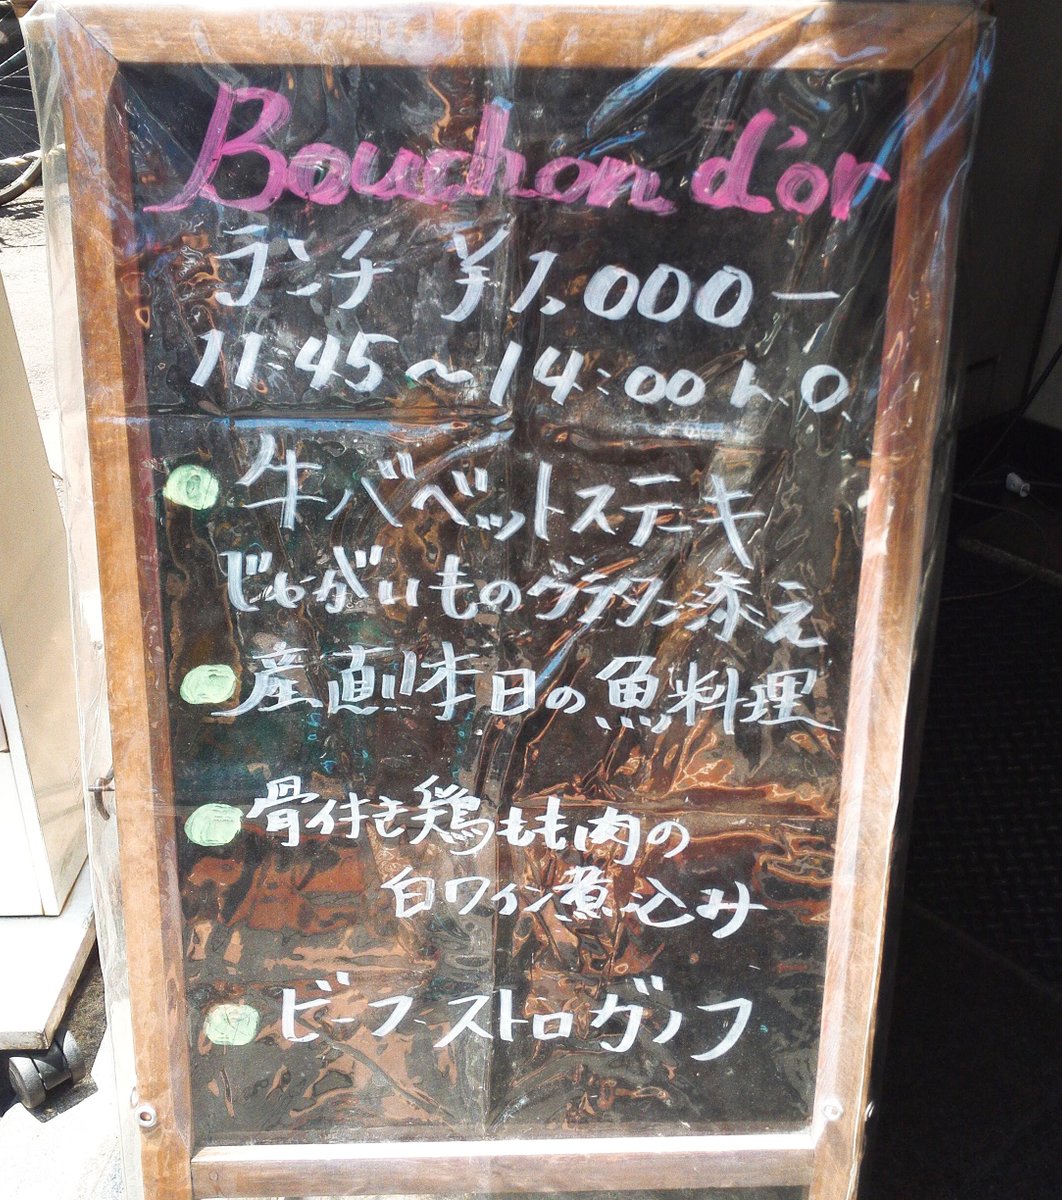 Bouchon d'or
ランチ ¥1,000ー
11:45〜14:00 L.O.
牛バベットステーキ
じゃがいものグラタン添え
産直!!本日の魚料理
骨付き鶏もも肉の
白ワイン煮込み
ビーフストロガノフ